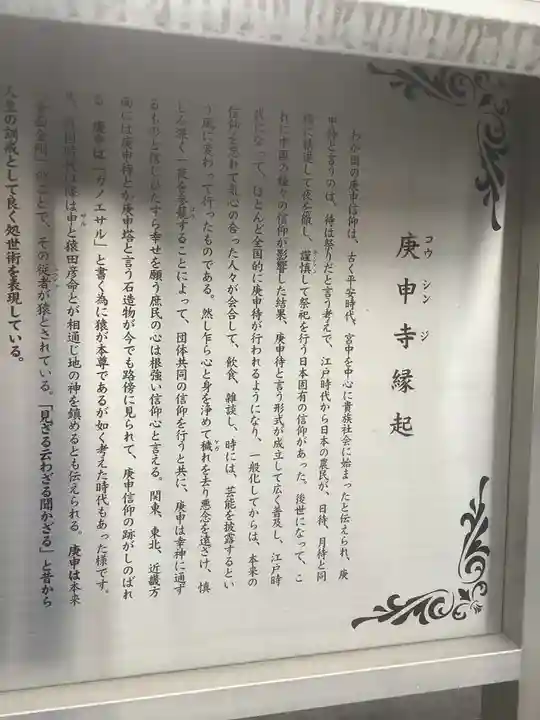 庚申寺縁起
コウ シン ジ
わが国の庚申信仰は、古く平安時代、宮中を中心に貴族社会に始まったと伝えられ、庚
申待と言うのは、待は祭りだと言う考えで、江戸時代から日本の農民が、日待、月待と同
様に精進して夜を徹し、謹慎して祭祀を行う日本固有の信仰があった。後世になって、こ
れに中国の種々の信仰が影響した結果、庚申待と言う形式が成立して広く普及し、江戸時
代になって、ほとんど全国的に庚申待が行われるようになり、一般化してからは、本来の
信仰を忘れて気心の合った人々が会合して、飲食、雑談し、時には、芸能を披露するとい
う風に変わって行ったものである。然し乍ら心と身を浄めて穢れを去り悪念を遠ざけ、慎
しみ深く一夜を参籠することによって、団体共同の信仰を行うと共に、庚申は幸神に通ず
るものと信じひたすら幸せを願う庶民の心は根強い信仰心と言える。関東、東北、近畿方
面には庚申待とか庚申塔と言う石造物が今でも路傍に見られて、庚申信仰の跡がしのばれ
る。庚申は「カノエサル」と書く為に猿が本尊であるが如く考えた時代もあった様です。
は申と猿田彦命とが相通じ地の神を鎮めるとも伝えられる。庚申は本来
金剛」のことで、その従者が猿とされている。「見ざる云わざる聞かざる」と昔から
人生の訓戒として良く処世術を表現している。